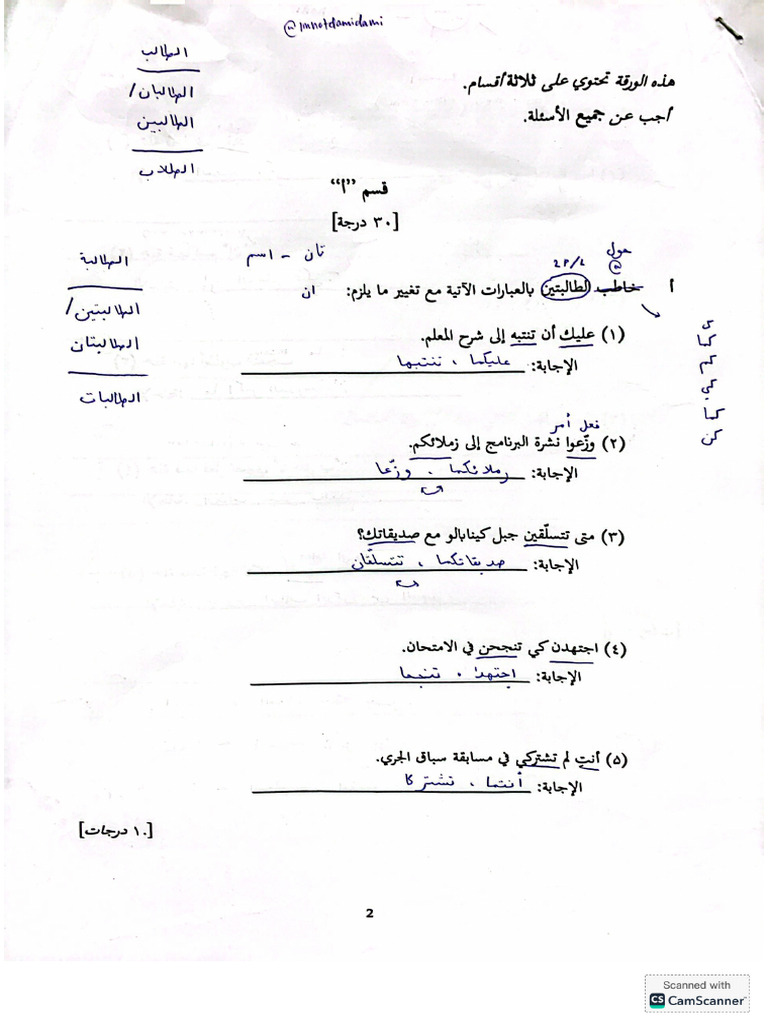 @imnotdamidami
الطالب
الطالبان/
الطالبين
الطلاب
هذه الورقة تحتوي على ثلاثة أقسام.
أجب عن جميع الأسئلة.
قسم "ا"
[٣٠ درجة]
تان - اسم
ان
حول
الطالبة
الطالبتين/
الطالبتان
الطالبات
أ خاطب الطالبتين بالعبارات الآتية مع تغيير ما يلزم:
كما
كم
كِ
كما
كن
(١) عليك أن تنتبه إلى شرح المعلم.
الإجابة: عليكما ، تنتبها
فعل أمر
(٢) وزّعوا نشرة البرنامج إلى زملائكم.
الإجابة: زملائكما ، وزّعا
(٣) متى تتسلّقين جبل كينابالو مع صديقاتك؟
الإجابة: صديقاتكما ، تتسلّقان
(٤) اجتهدن كي تنجحن في الامتحان.
الإجابة: اجتهدا ، تنجحا
(٥) أنتِ لم تشتركي في مسابقة سباق الجري.
الإجابة: أنتما ، تشتركا
[١٠ درجات]
2
Scanned with
CS CamScanner